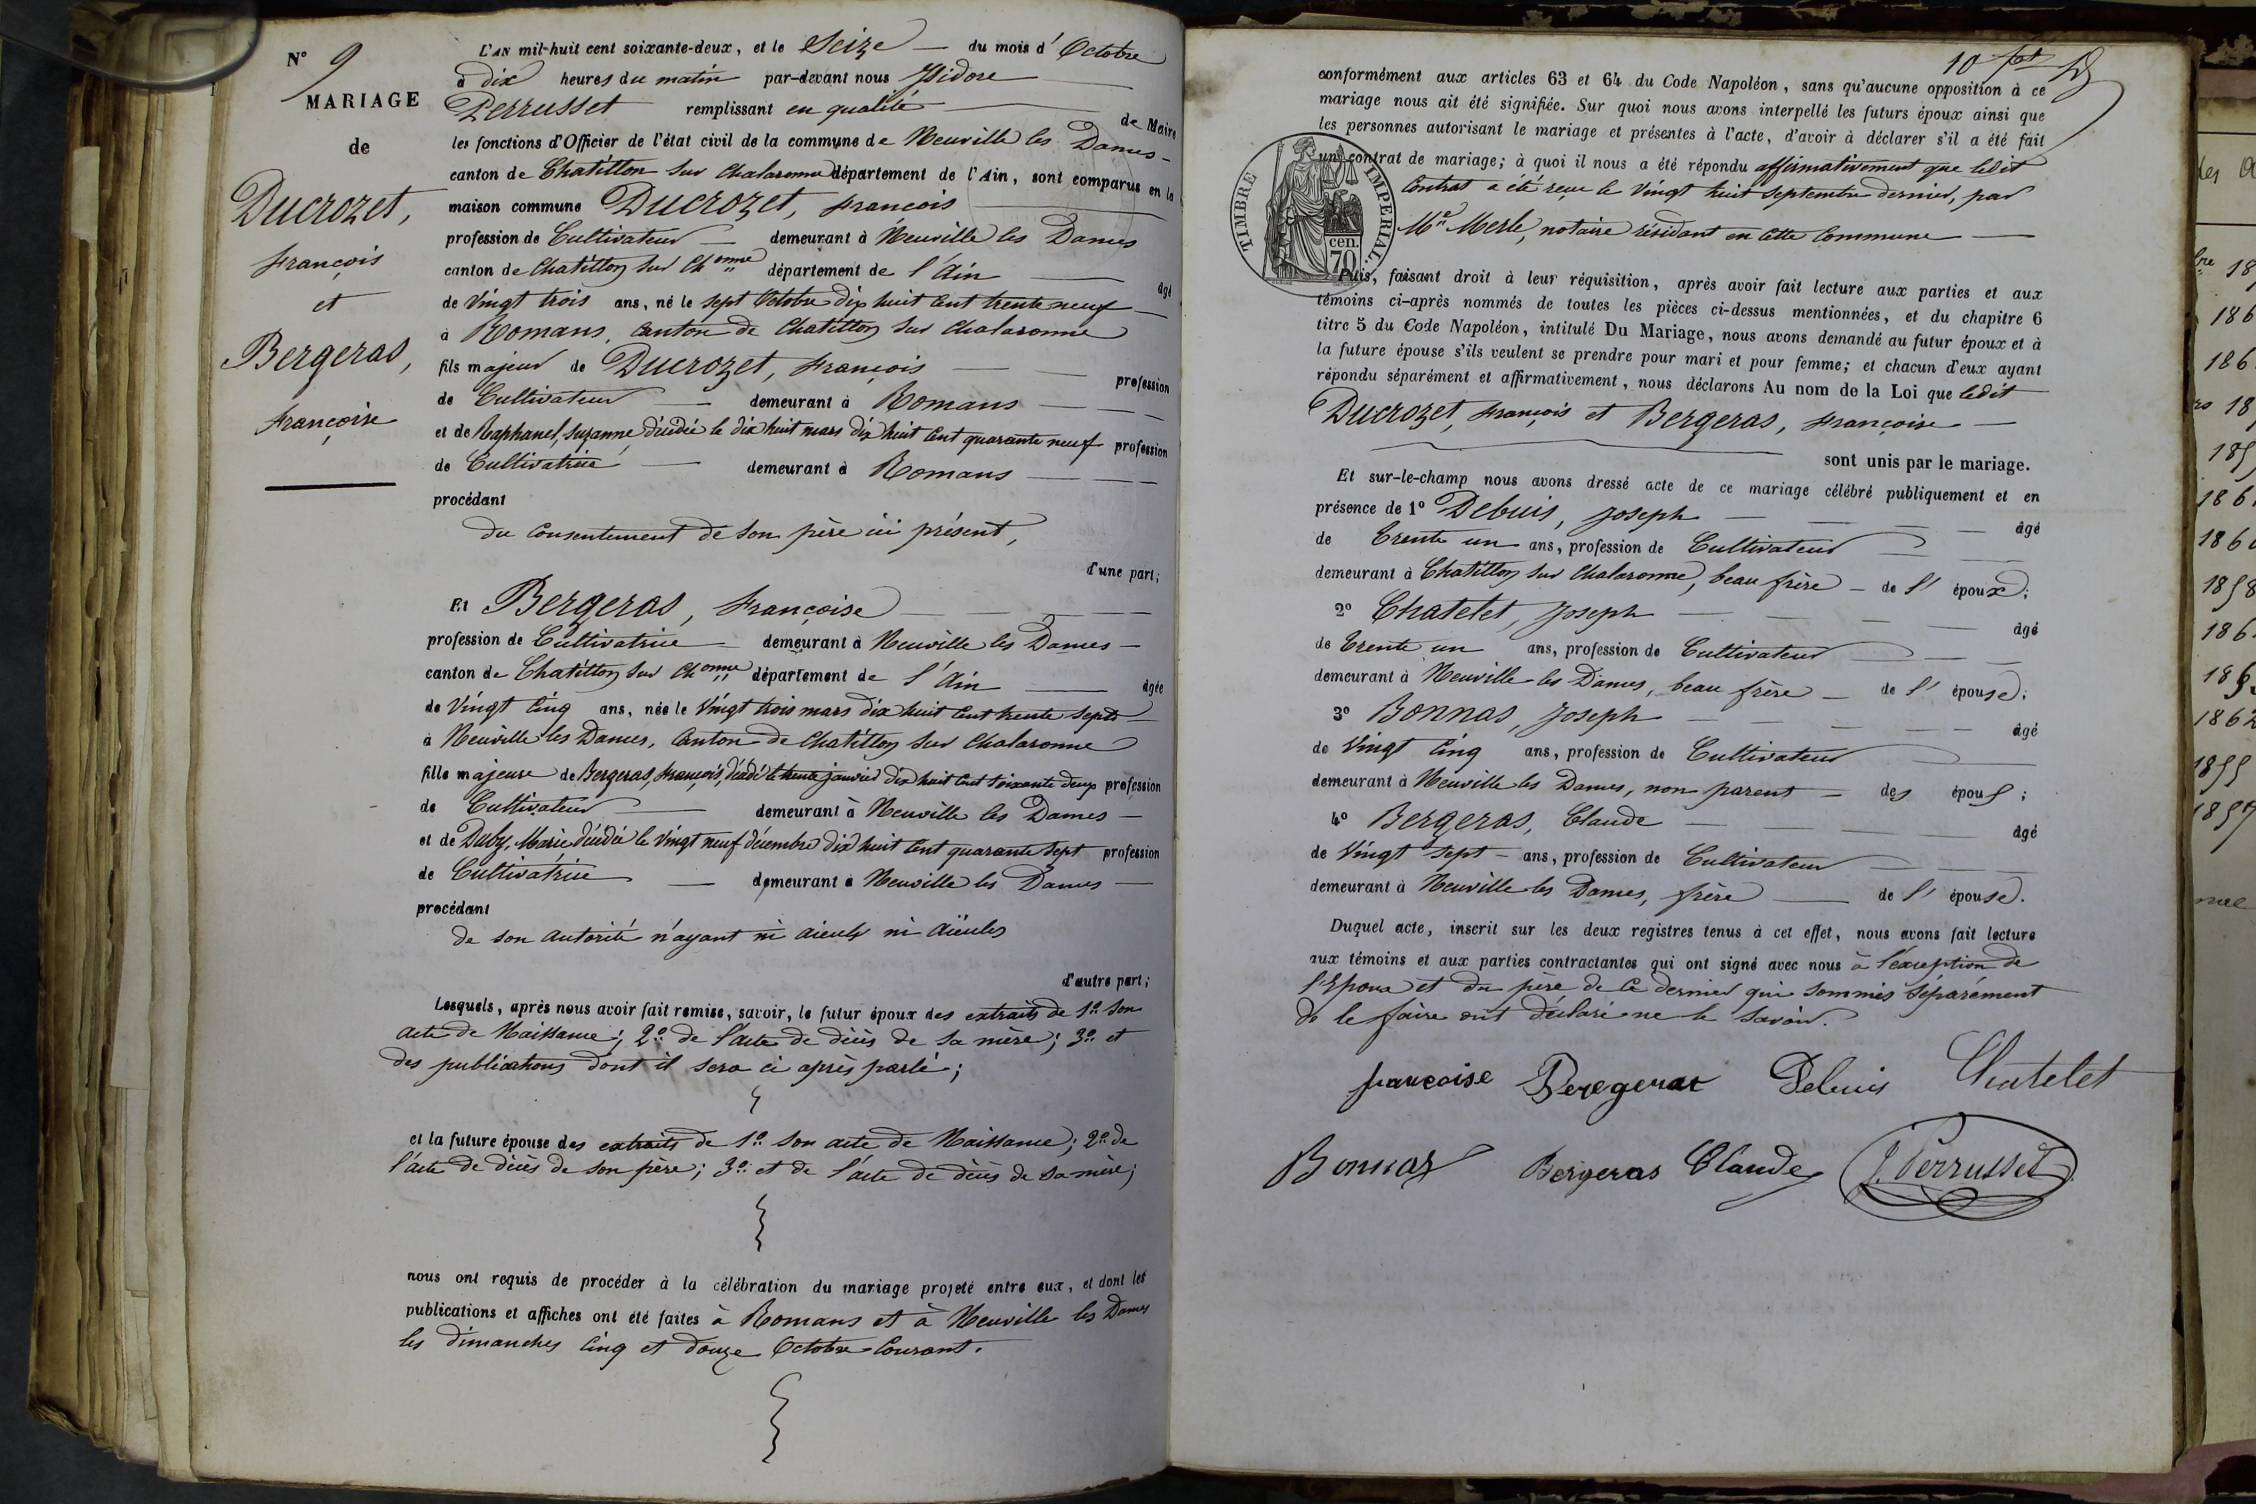 N° 9
MARIAGE
de
Ducrozet,
françois
et
Bergeras,
françoise
L'AN mil-huit cent soixante-deux, et le Seize du mois d'Octobre
à dix heures du matin par-devant nous Isidore
Perrusset remplissant en qualité de Maire
les fonctions d'Officier de l'état civil de la commune de Neuville les Dames
canton de Chatillon sur Chalaronne département de l'Ain, sont comparus en la
maison commune Ducrozet, françois
profession de Cultivateur demeurant à Neuville les Dames
canton de Chatillon sur Ch onne département de l'Ain âgé
de Vingt trois ans, né le sept Octobre dix huit cent trente neuf
à Romans, canton de Chatillon sur Chalaronne
fils majeur de Ducrozet, François profession
de Cultivateur demeurant à Romans
et de Raphanel, Suzanne décédée le dix huit mars dix huit cent quarante neuf profession
de Cultivatrice demeurant à Romans
procédant
du consentement de son père ici présent,
d'une part;
Et Bergeras, françoise
profession de Cultivatrice demeurant à Neuville les Dames
canton de Chatillon sur Ch onne département de l'Ain âgée
de Vingt cinq ans, née le Vingt trois mars dix huit cent trente sept
à Neuville les Dames, Canton de Chatillon sur Chalaronne
fille majeure de Bergeras, françois, décédé le trente janvier dix huit cent soixante deux profession
de Cultivateur demeurant à Neuville les Dames
et de Duby, Marie décédée le vingt neuf décembre dix huit cent quarante sept profession
de Cultivatrice demeurant à Neuville les Dames
procédant
de son autorité n'ayant ni aïeuls ni aïeules
d'autre part;
Lesquels, après nous avoir fait remise, savoir, le futur époux des extraits de 1° son
acte de Naissance; 2° de l'acte de décès de sa mère; 3° et
des publications dont il sera ci après parlé;
et la future épouse des extraits de 1° son acte de Naissance; 2° de
l'acte de décès de son père; 3° et de l'acte de décès de sa mère;
nous ont requis de procéder à la célébration du mariage projeté entre eux, et dont les
publications et affiches ont été faites à Romans et à Neuville les Dames
les dimanches cinq et douze Octobre Courant.
10
conformément aux articles 63 et 64 du Code Napoléon, sans qu'aucune opposition à ce
mariage nous ait été signifiée. Sur quoi nous avons interpellé les futurs époux ainsi que
les personnes autorisant le mariage et présentes à l'acte, d'avoir à déclarer s'il a été fait
un contrat de mariage; à quoi il nous a été répondu affirmativement que ledit
Contrat a été reçu le vingt huit septembre dernier, par
Me Merle, notaire résidant en cette Commune
TIMBRE IMPERIAL.
70 cen.
Puis, faisant droit à leur réquisition, après avoir fait lecture aux parties et aux
témoins ci-après nommés de toutes les pièces ci-dessus mentionnées, et du chapitre 6
titre 5 du Code Napoléon, intitulé Du Mariage, nous avons demandé au futur époux et à
la future épouse s'ils veulent se prendre pour mari et pour femme; et chacun d'eux ayant
répondu séparément et affirmativement, nous déclarons Au nom de la Loi que ledit
Ducrozet, françois et Bergeras, françoise
sont unis par le mariage.
Et sur-le-champ nous avons dressé acte de ce mariage célébré publiquement et en
présence de 1° Debuis, Joseph âgé
de Trente un ans, profession de Cultivateur
demeurant à Chatillon sur Chalaronne, beau frère de l'époux;
2° Chatelet, Joseph âgé
de Trente un ans, profession de Cultivateur
demeurant à Neuville les Dames, beau frère de l'épouse;
3° Bonnas, Joseph âgé
de Vingt Cinq ans, profession de Cultivateur
demeurant à Neuville les Dames, non parent des époux;
4° Bergeras, Claude âgé
de Vingt sept ans, profession de Cultivateur
demeurant à Neuville les Dames, frère de l'épouse.
Duquel acte, inscrit sur les deux registres tenus à cet effet, nous avons fait lecture
aux témoins et aux parties contractantes qui ont signé avec nous à l'exception de
l'Epoux et du père de ce dernier qui sommés séparément
de le faire ont déclaré ne le savoir.
françoise Bergeras Debuis Chatelet
Bonnas Bergeras Claude J. Perrusset